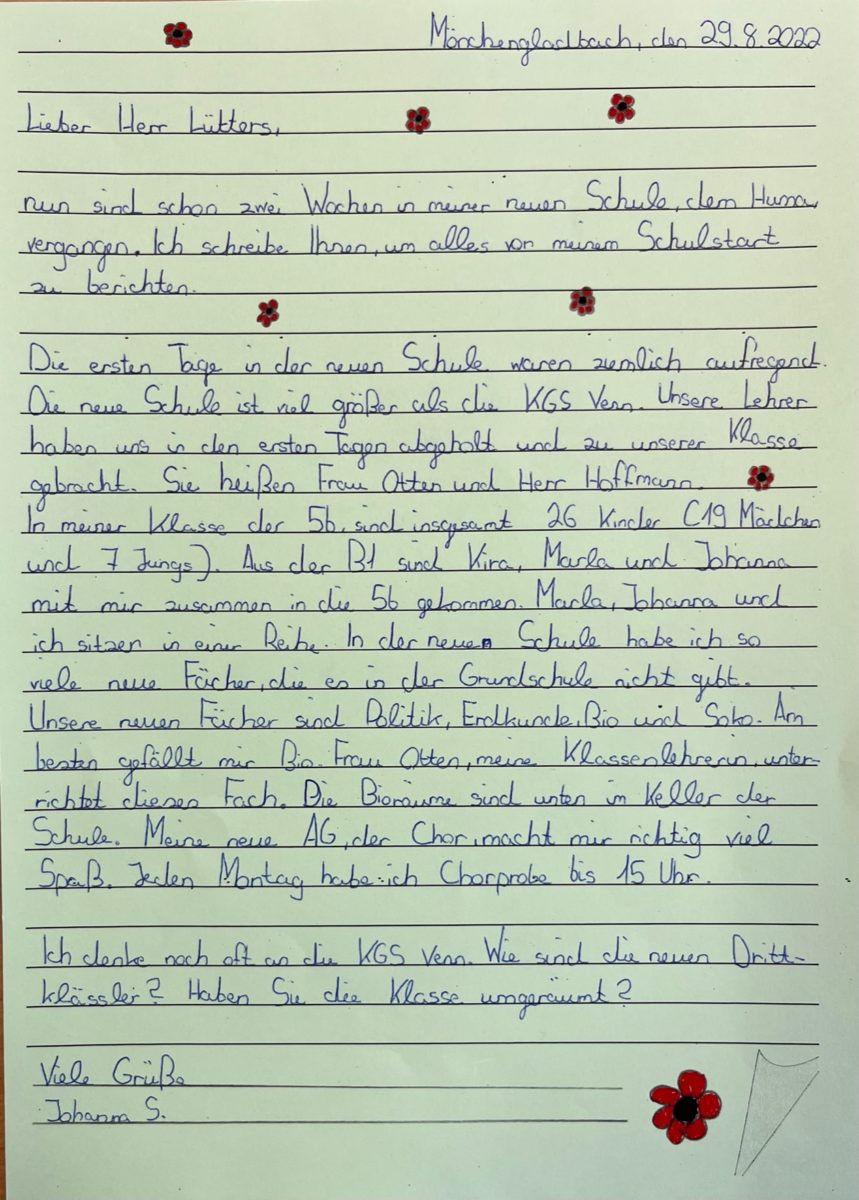 Mönchengladbach, den 29.8.2022
Lieber Herr Lütters,
nun sind schon zwei Wochen in meiner neuen Schule, dem Huma,
vergangen. Ich schreibe Ihnen, um alles von meinem Schulstart
zu berichten.
Die ersten Tage in der neuen Schule waren ziemlich aufregend.
Die neue Schule ist viel größer als die KGS Venn. Unsere Lehrer
haben uns in den ersten Tagen abgeholt und zu unserer Klasse
gebracht. Sie heißen Frau Otten und Herr Hoffmann.
In meiner Klasse der 5b, sind insgesamt 26 Kinder (19 Mädchen
und 7 Jungs). Aus der B1 sind Kira, Marla und Johanna
mit mir zusammen in die 5b gekommen. Marla, Johanna und
ich sitzen in einer Reihe. In der neuen Schule habe ich so
viele neue Fächer, die es in der Grundschule nicht gibt.
Unsere neuen Fächer sind Politik, Erdkunde, Bio und Soko. Am
besten gefällt mir Bio. Frau Otten, meine Klassenlehrerin, unter-
richtet dieses Fach. Die Bioräume sind unten im Keller der
Schule. Meine neue AG, der Chor, macht mir richtig viel
Spaß. Jeden Montag habe ich Chorprobe bis 15 Uhr.
Ich denke noch oft an die KGS Venn. Wie sind die neuen Dritt-
klässler? Haben Sie die Klasse umgeräumt?
Viele Grüße
Johanna S.